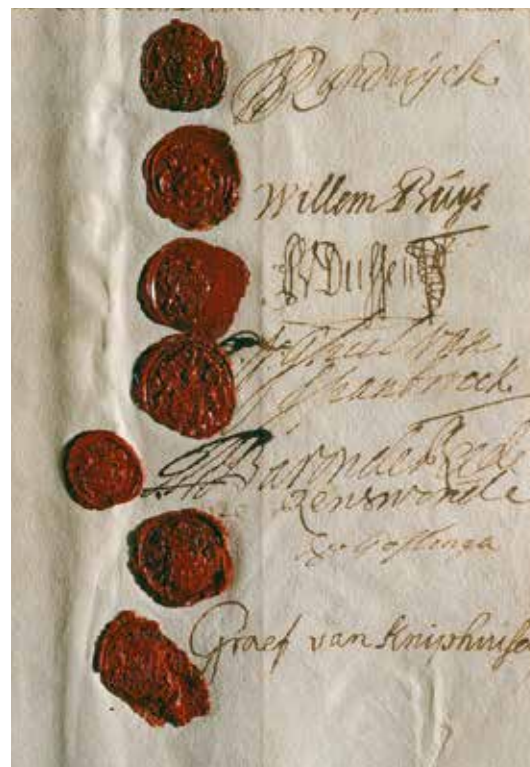 Randwijck
Willem Buys
v Dussen
Gheel van
Spanbroeck.
Baron de Reede
Renswoude
Goslinga
Graef van Kniphuis